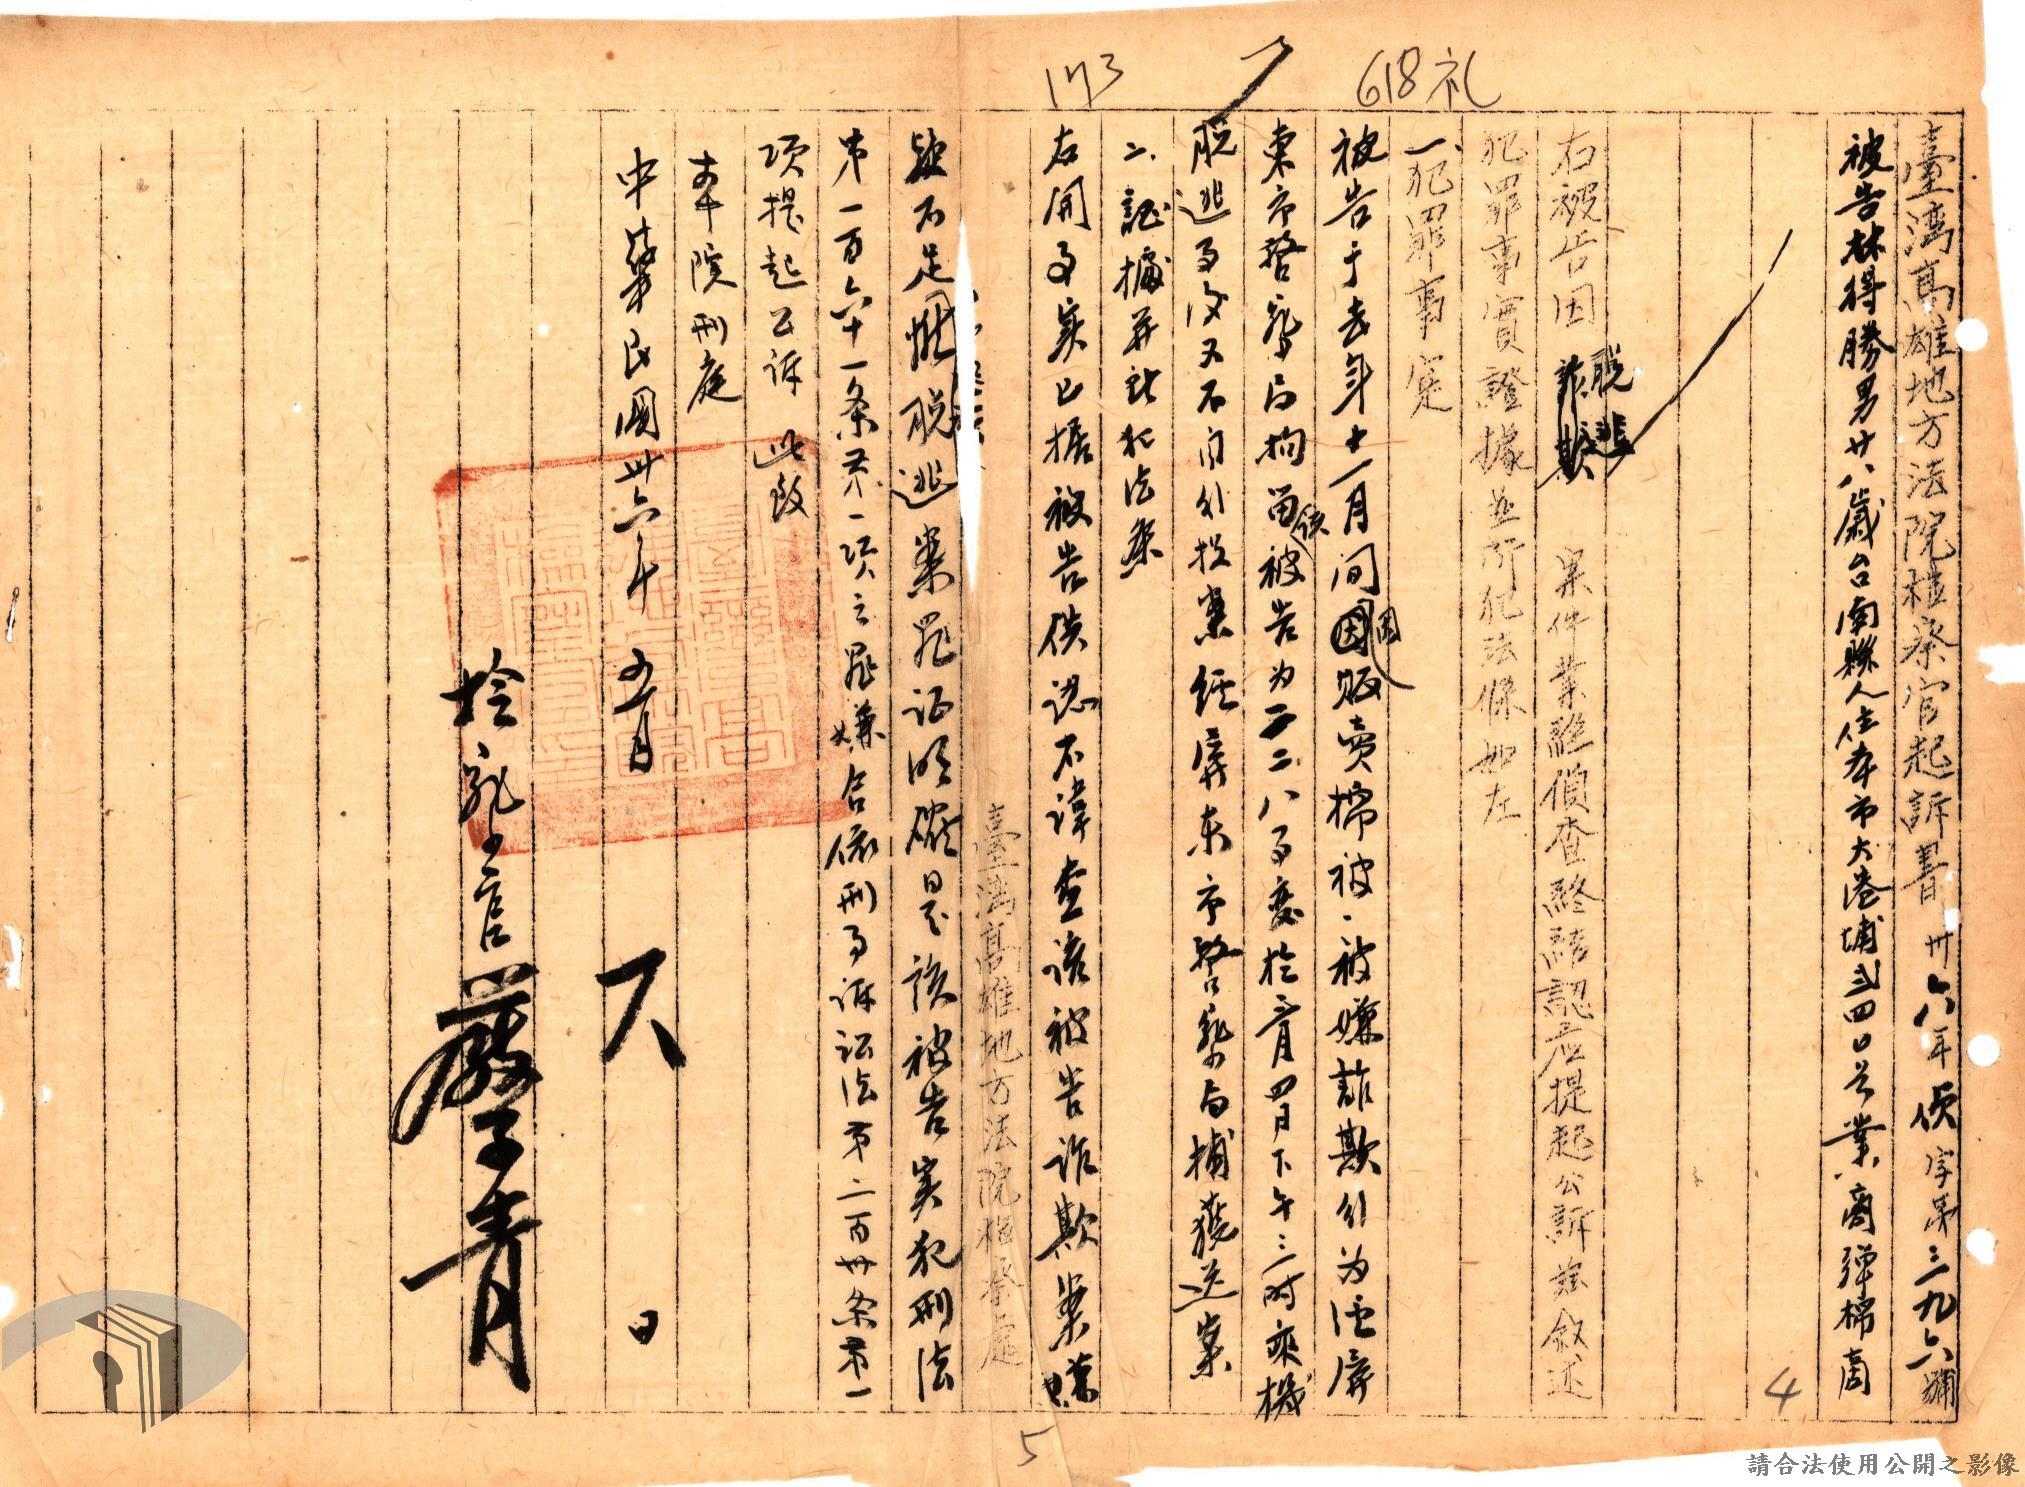 173
618礼
臺灣高雄地方法院檢察官起訴書 卅六年偵字第三九六號
被告林得勝男廿八歲台南縣人住本市大港埔弍四口号業商弹棉商
4
右被告因 脱逃 案件業經偵查終結認應提起公訴茲敘述
詐欺
犯罪事實證據並所犯法條如左
一、犯罪事實
被告于去年十一月間因販卖棉被、被嫌詐欺
東市警察局拘留該被告为二二八事变於三月四日下午三时乘機
脱逃事後又不自行投案經屏東市警察局捕獲送案
二、証據并所犯法条
右開事实已据被告供認不諱查該被告詐欺案嫌
疑不足惟脱逃案罪证明確是該被告实犯刑法
臺灣高雄地方法院檢察處
第一百六十一条第一项之罪嫌合依刑事诉讼法第二百卅条第一
项提起公诉 此致
本院刑庭
中華民國卅六年 五月 日
檢察官
5
請合法使用公開之影像